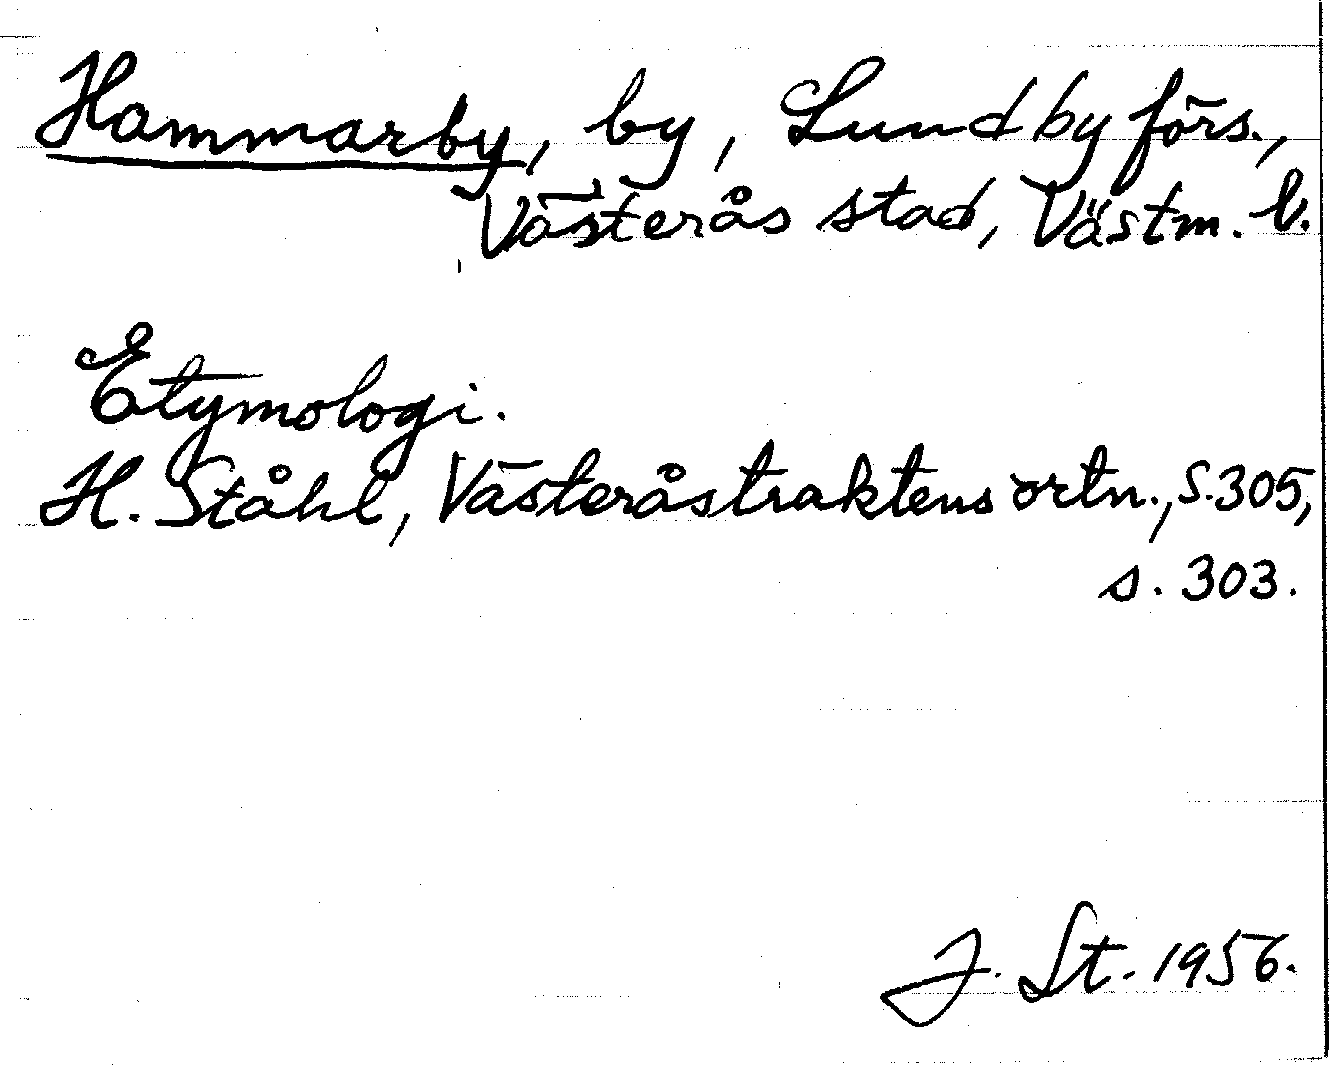 Hammarby, by, Lundby förs.,
Västerås stad, Västm. l.
Etymologi.
H. Ståhl, Västeråstraktens ortn., s. 305,
s. 303.
J. St. 1956.